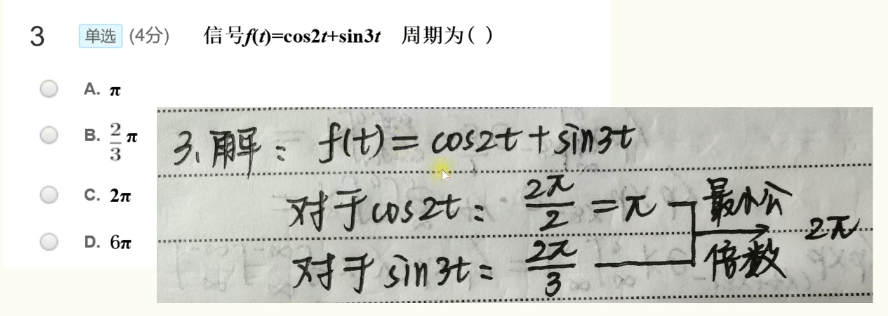 3 单选 (4分) 信号f(t)=cos2t+sin3t 周期为( )
A. π
B. 2/3 π
C. 2π
D. 6π
3、解：f(t)=cos2t+sin3t
对于cos2t：2π/2=π
对于sin3t：2π/3
最小公倍数 2π